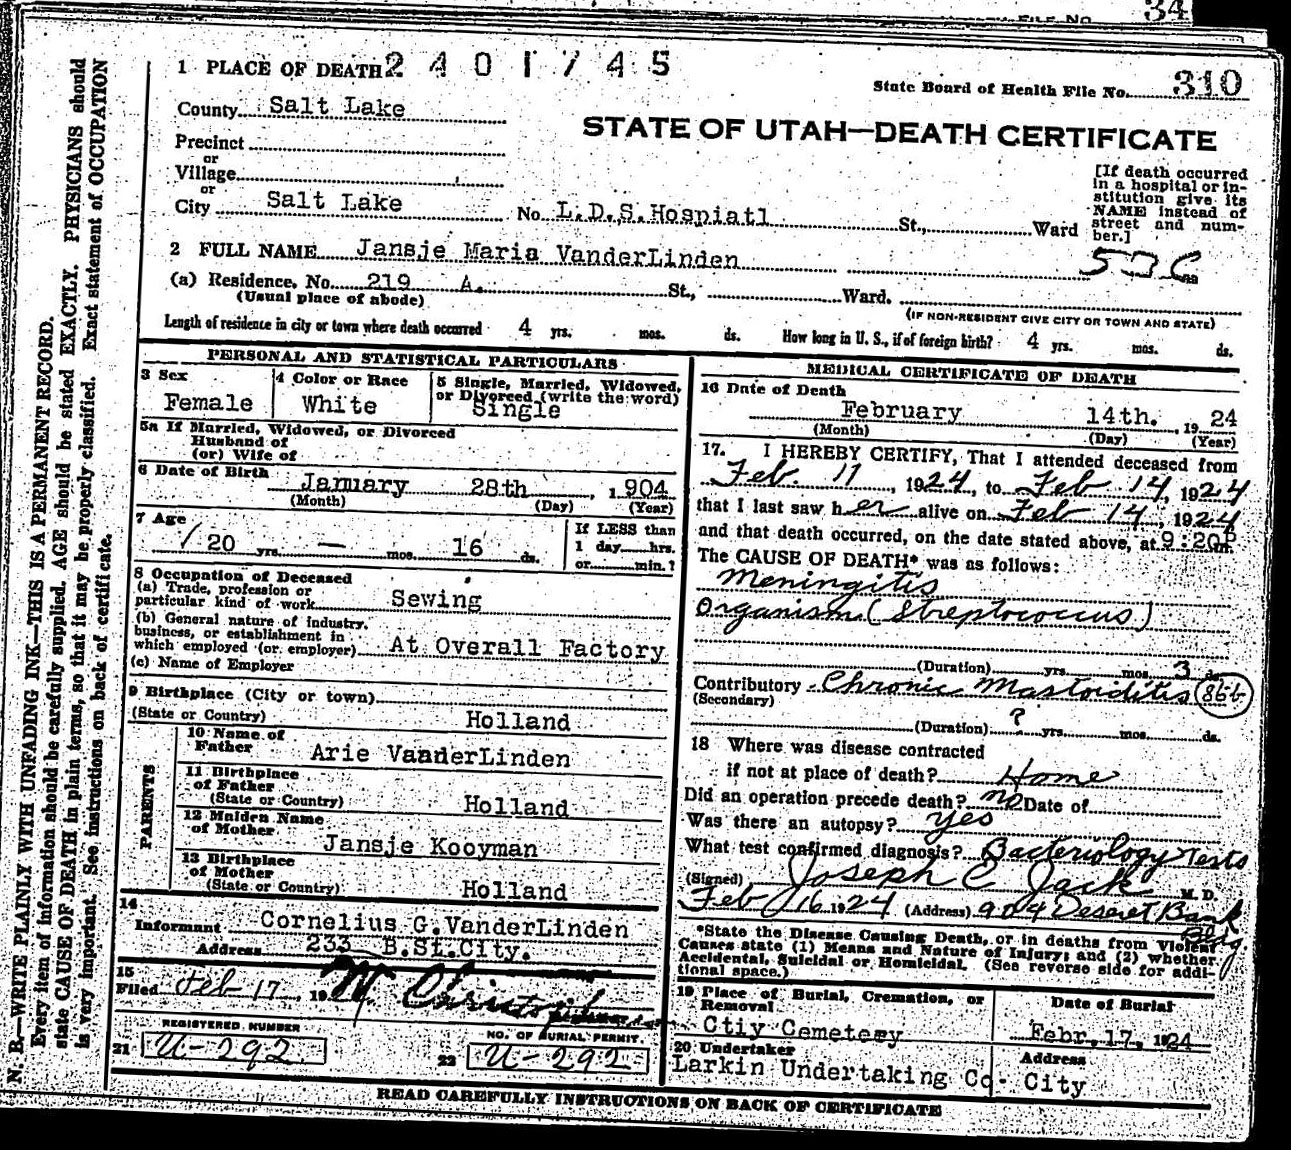 FILE No. 34
1 PLACE OF DEATH 2401745
State Board of Health File No. 310
County Salt Lake
STATE OF UTAH—DEATH CERTIFICATE
Precinct
or
Village
or
City Salt Lake No. L.D.S.Hospiatl St., Ward
[If death occurred
in a hospital or in-
stitution give its
NAME instead of
street and num-
ber.]
2 FULL NAME Jansje Maria VanderLinden
(a) Residence, No. 219 A. St., Ward.
(Usual place of abode)
(IF NON-RESIDENT GIVE CITY OR TOWN AND STATE)
Length of residence in city or town where death occurred 4 yrs. mos. ds. How long in U. S., if of foreign birth? 4 yrs. mos. ds.
PERSONAL AND STATISTICAL PARTICULARS
3 Sex
Female
4 Color or Race
White
5 Single, Married, Widowed,
or Divorced (write the word)
Single
5a If Married, Widowed, or Divorced
Husband of
(or) Wife of
6 Date of Birth January 28th, 1904
(Month) (Day) (Year)
7 Age
20 yrs. — mos. 16 ds.
If LESS than
1 day hrs.
or min.?
8 Occupation of Deceased
(a) Trade, profession or
particular kind of work Sewing
(b) General nature of industry,
business, or establishment in
which employed (or employer) At Overall Factory
(c) Name of Employer
9 Birthplace (City or town)
(State or Country) Holland
PARENTS
10 Name of
Father Arie VanderLinden
11 Birthplace
of Father
(State or Country) Holland
12 Maiden Name
of Mother Jansje Kooyman
13 Birthplace
of Mother
(State or Country) Holland
14
Informant Cornelius G.VanderLinden
Address 233 B.St.City.
15
Filed Feb 17, 19
REGISTERED NUMBER
21 U-292
NO. OF BURIAL PERMIT
22 U-292
MEDICAL CERTIFICATE OF DEATH
16 Date of Death
February 14th. , 19 24
(Month) (Day) (Year)
17. I HEREBY CERTIFY, That I attended deceased from
Feb. 11, 1924, to Feb 14, 1924
that I last saw her alive on Feb 14, 1924
and that death occurred, on the date stated above, at 9:20P m.
The CAUSE OF DEATH* was as follows:
Meningitis
Organism (Streptococcus)
(Duration) yrs. mos. 3 ds.
Contributory Chronic Mastoiditis 86b
(Secondary)
(Duration) ? yrs. mos. ds.
18 Where was disease contracted
if not at place of death? Home
Did an operation precede death? no Date of
Was there an autopsy? yes
What test confirmed diagnosis? Bacteriology Tests
(Signed) Joseph E Jack M. D.
Feb 16 1924 (Address) 904 Deseret Bank
Bldg.
*State the Disease Causing Death, or in deaths from Violent
Causes state (1) Means and Nature of Injury; and (2) whether
Accidental, Suicidal or Homicidal. (See reverse side for addi-
tional space.)
19 Place of Burial, Cremation, or
Removal
Ctiy Cemetery
Date of Burial
Febr. 17, 1924
20 Undertaker
Larkin Undertaking Co.
Address
City
READ CAREFULLY INSTRUCTIONS ON BACK OF CERTIFICATE
N. B.—WRITE PLAINLY WITH UNFADING INK—THIS IS A PERMANENT RECORD.
Every item of information should be carefully supplied. AGE should be stated EXACTLY. PHYSICIANS should
state CAUSE OF DEATH in plain terms, so that it may be properly classified. Exact statement of OCCUPATION
is very important. See instructions on back of certificate.